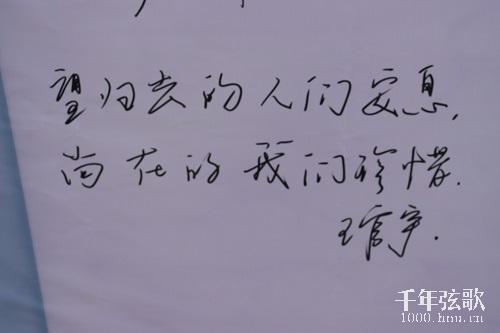 望归去的人们安息,
尚在的我们珍惜.
千年弦歌
1000.hnu.cn